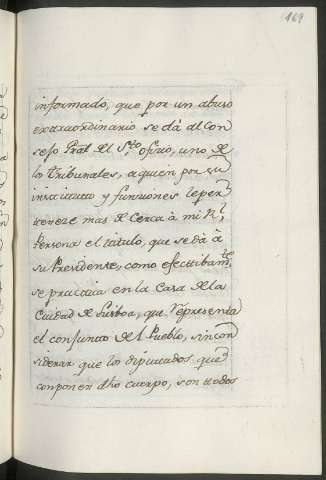 169
informado, que por un abuso
extraordinario se dà al Con
sejo Gral del Sto. oficio, uno de
los tribunales, a quien por su
instituto y funciones le per
tenece mas de cerca à mi Rl.
Persona el titulo, que se dà à
su Presidente, como efectibamte.
se practica en la Casa de la
Ciudad de Lisboa, que representa
el conjunto del Pueblo, sin con
siderar que los diputados que
componen dho cuerpo, son todos